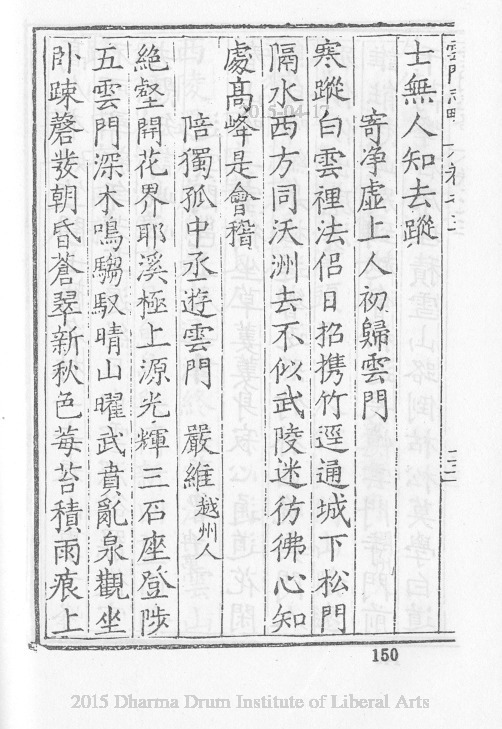 雲門志略 卷之三
士無人知去蹤
寄淨虛上人初歸雲門
寒蹤白雲裡法侶日招携竹逕通城下松門
隔水西方同沃洲去不似武陵迷彷彿心知
處髙峰是會稽
陪獨孤中丞遊雲門 嚴維 越州人
絶壑開花界耶溪極上源光輝三石座登陟
五雲門深木鳴騶馭晴山曜武賁亂泉觀坐
卧踈磬發朝昏蒼翠新秋色莓苔積雨痕上
150
2015-04-17
2015 Dharma Drum Institute of Liberal Arts